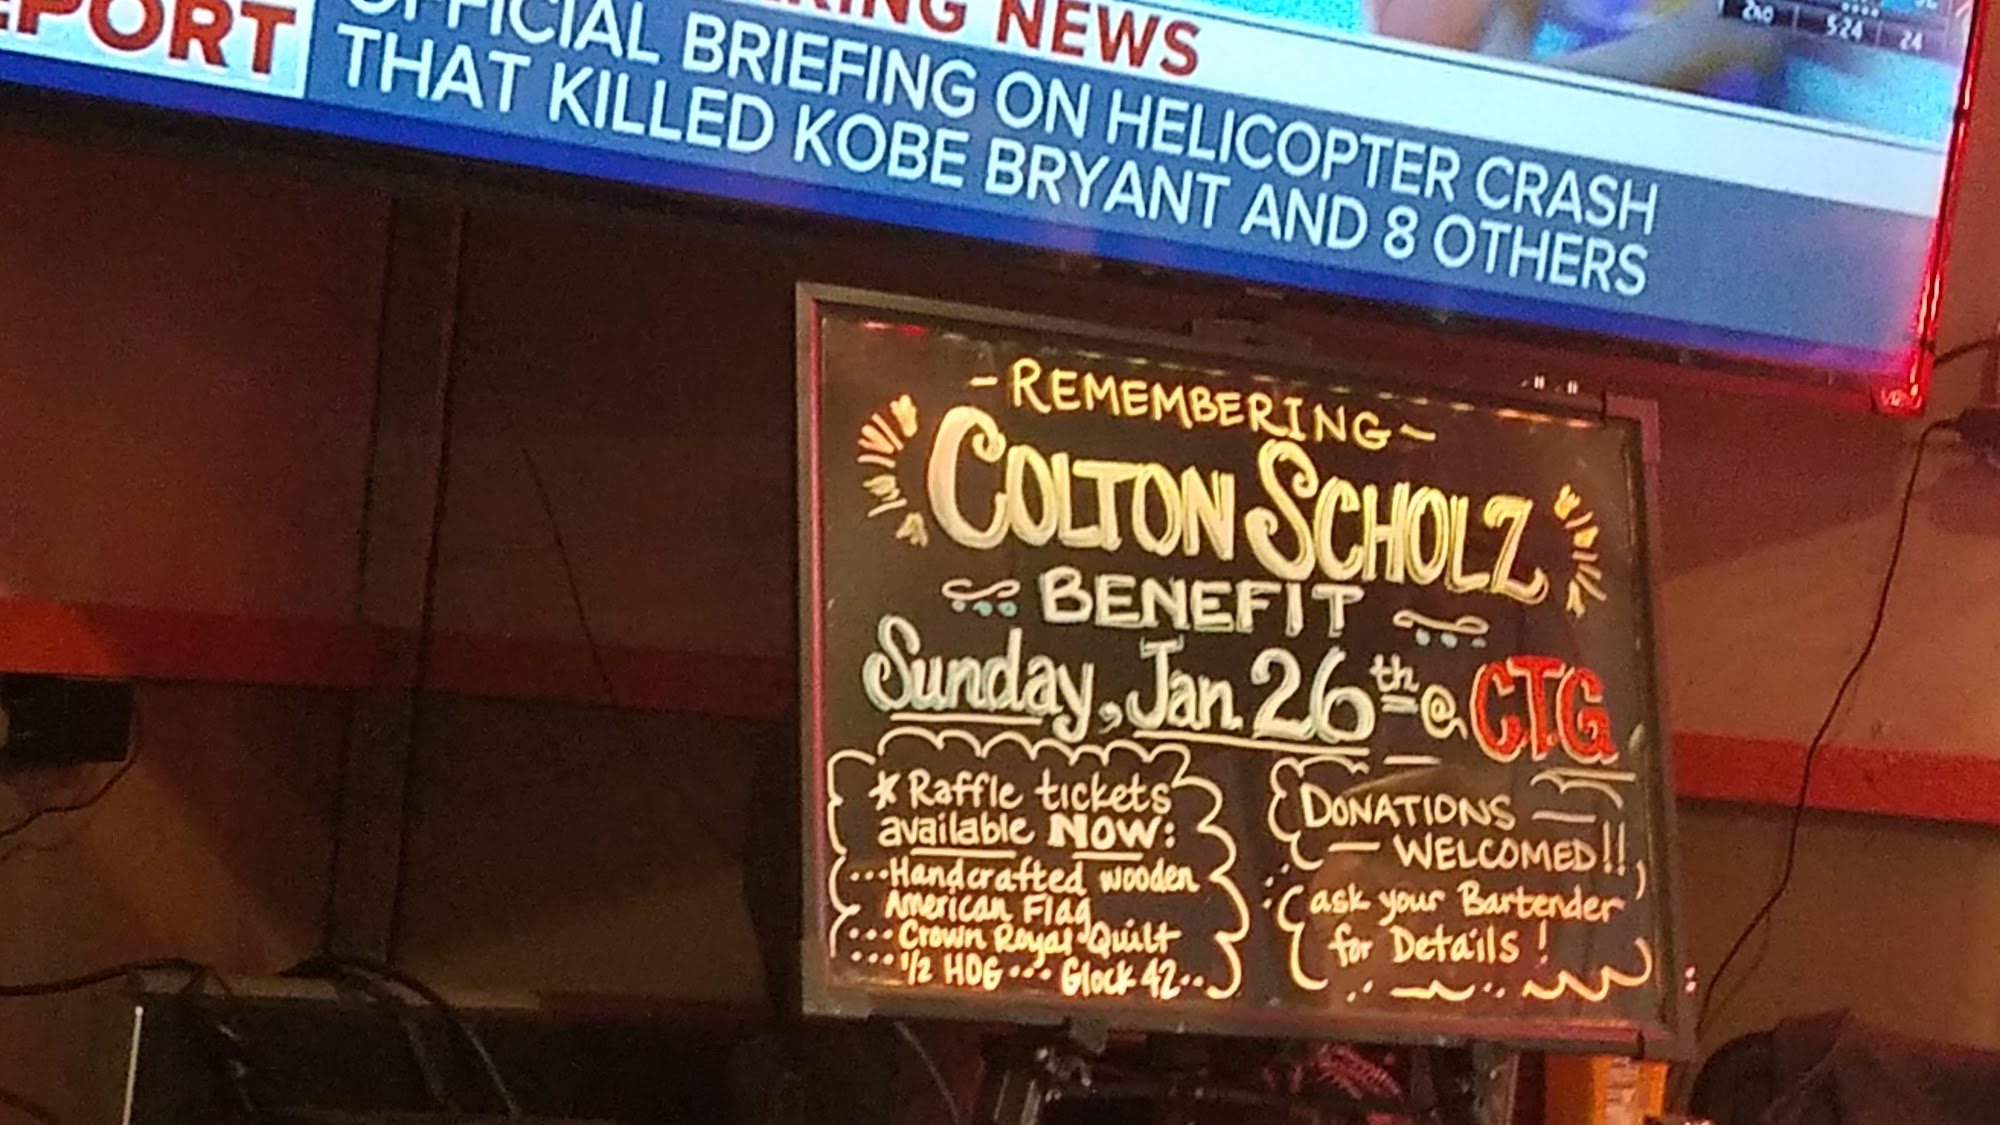 NEWS
OFFICIAL BRIEFING ON HELICOPTER CRASH
THAT KILLED KOBE BRYANT AND 8 OTHERS
2ND 5:24 24
- REMEMBERING ~
COLTON SCHOLZ
BENEFIT
Sunday, Jan. 26th @ CTG
* Raffle tickets
available NOW:
...Handcrafted wooden
American Flag
...Crown Royal Quilt
...1/2 HOG... Glock 42..
DONATIONS
WELCOMED!!
ask your Bartender
for Details!